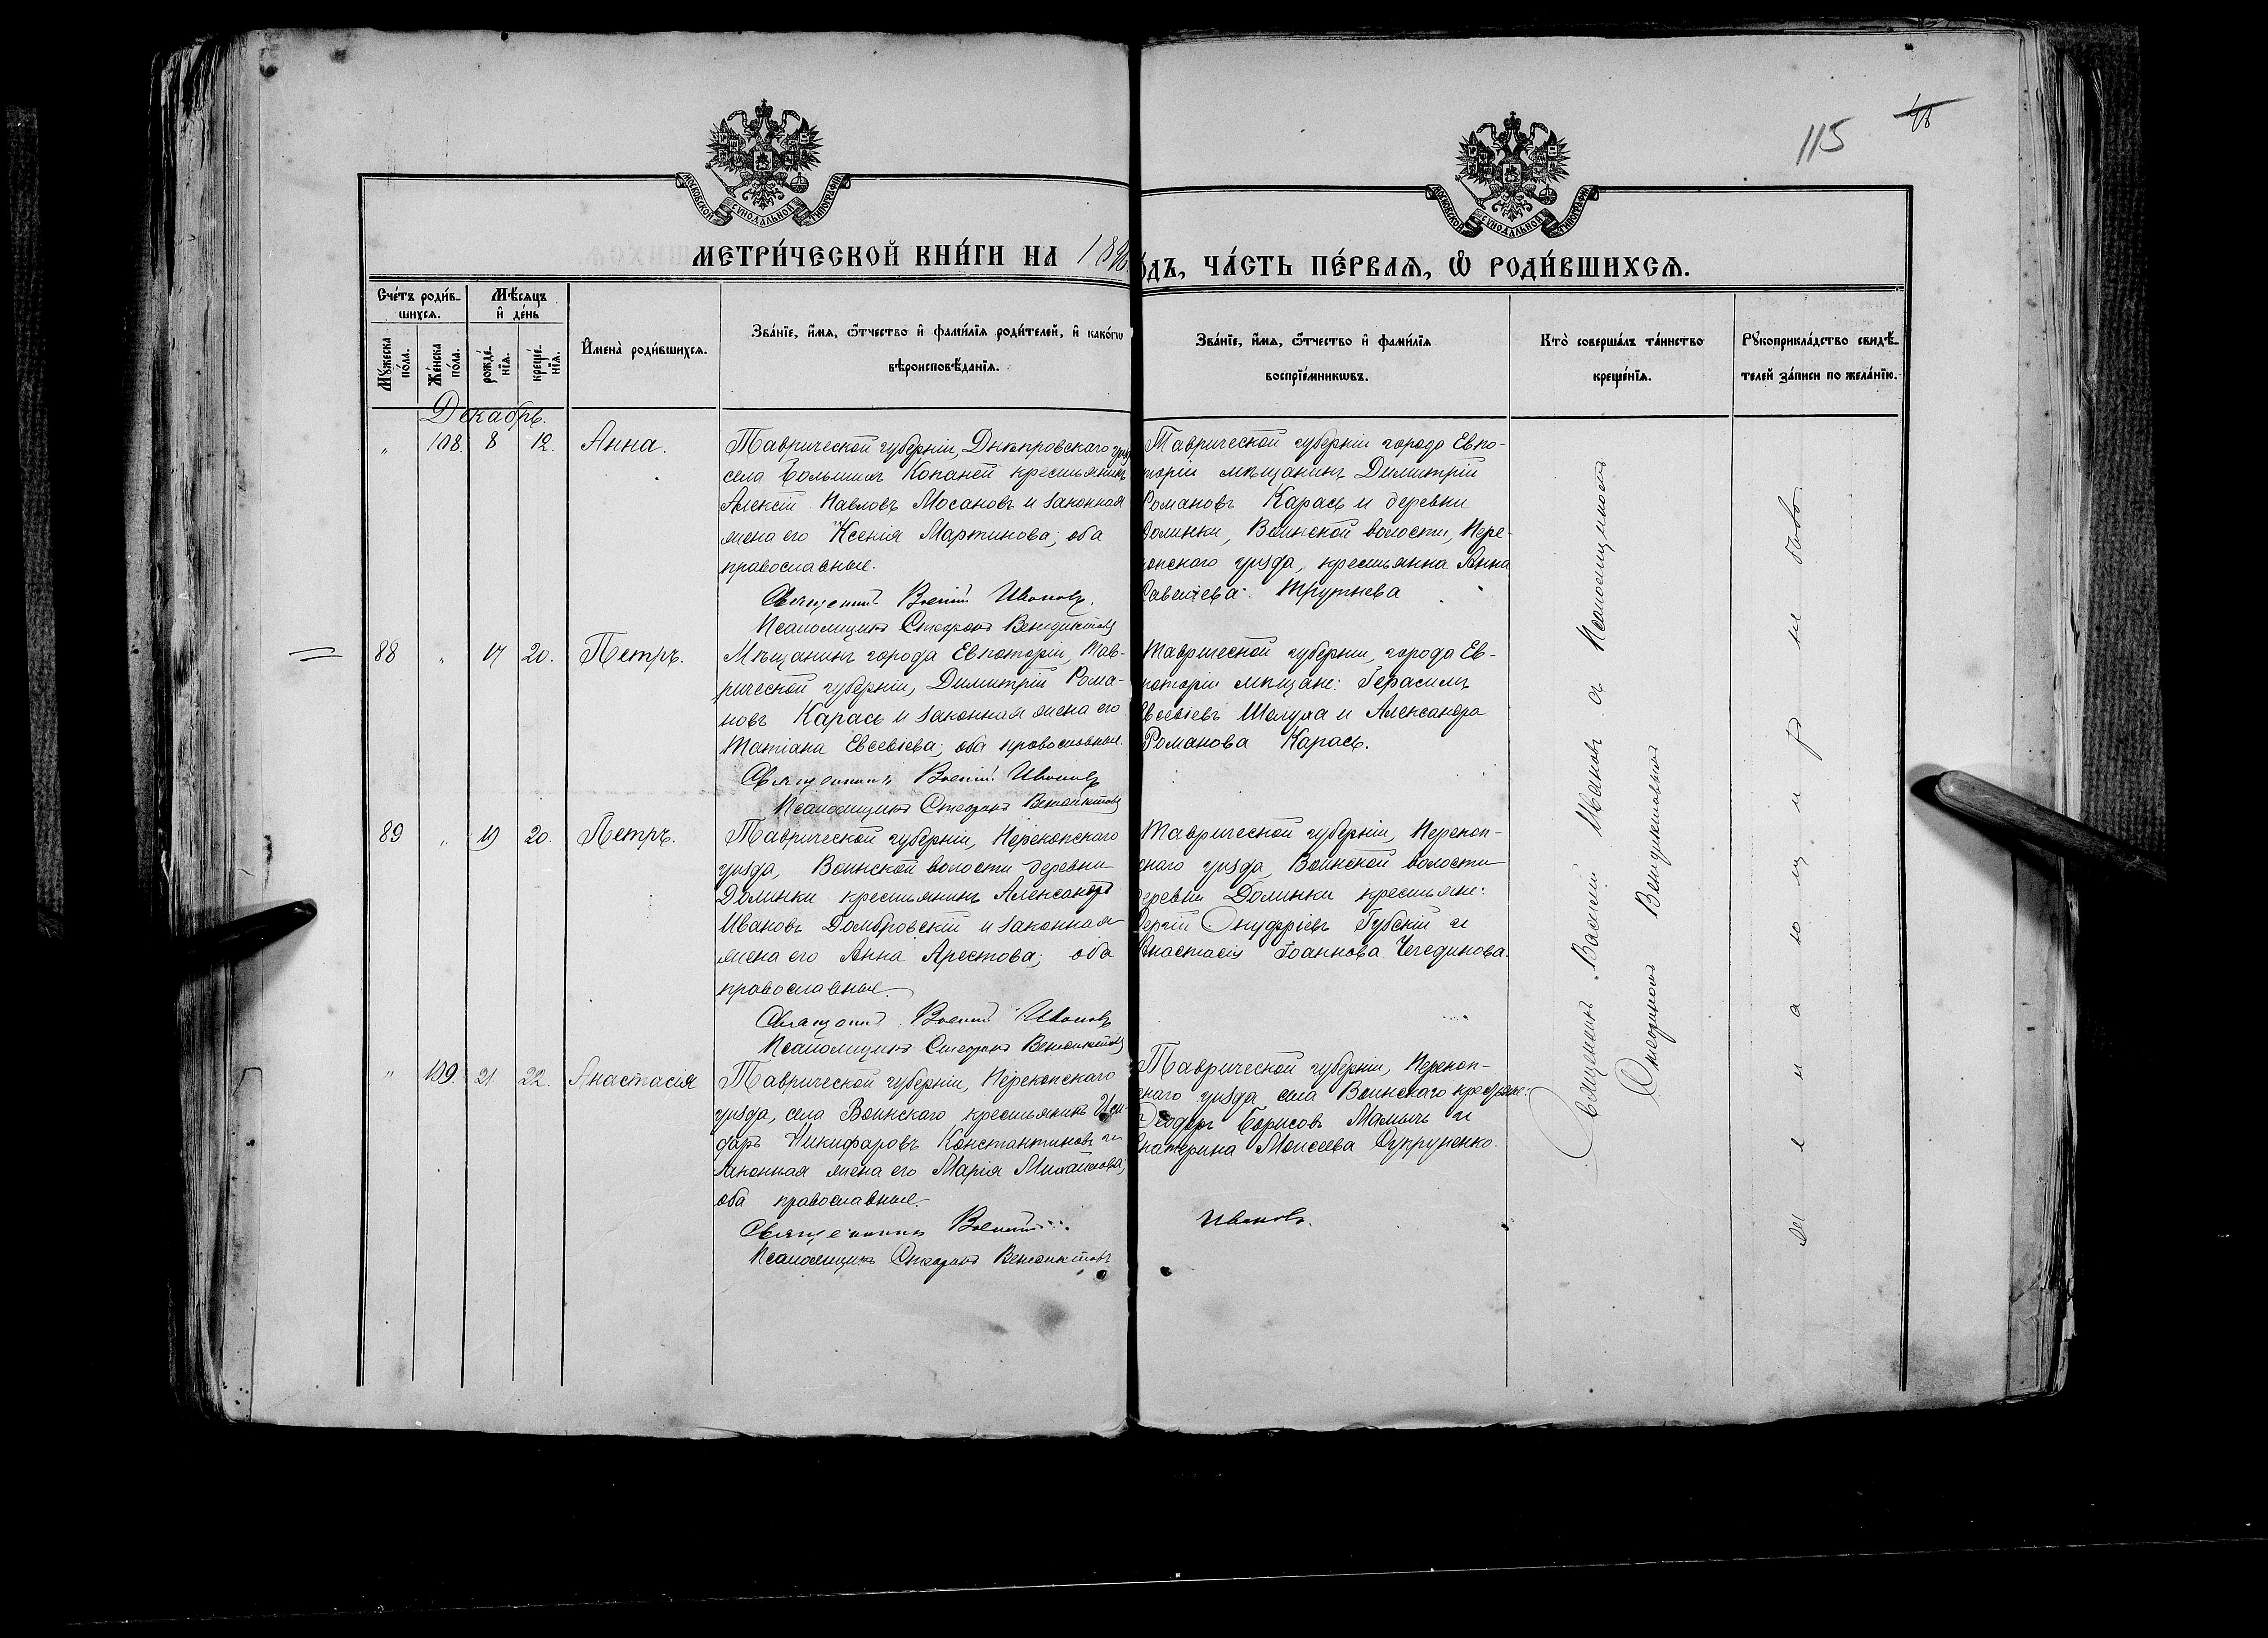 115
МОСКОВСКОЙ СΥНОДАЛЬНОЙ ТИПОГРАФІИ
МОСКОВСКОЙ СΥНОДАЛЬНОЙ ТИПОГРАФІИ
МЕТРИ́ЧЕСКОЙ КНИ́ГИ НА 189
ОДЪ, ЧА́СТЬ ПЕ́РВАѦ, Ѽ РОДИ́ВШИХСѦ.
Сче́тъ роди́в-
шихсѧ.
Мѣ́сѧцъ
и҆ де́нь
Мꙋ́жеска
по́ла.
Же́нска
по́ла.
рожде́-
нїѧ.
креще́-
нїѧ.
И҆мена̀ роди́вшихсѧ.
Зва́нїе, и҆́мѧ, ѻ҆́тчество и҆ фами́лїѧ роди́телей, и҆ како́гѡ
вѣроисповѣ́данїѧ.
Зва́нїе, и҆́мѧ, ѻ҆́тчество и҆ фами́лїѧ
воспрїе́мникѡвъ.
Кто̀ соверша́лъ та́инство
креще́нїѧ.
Рꙋкоприкла́дство свидѣ́-
телей за́писи по жела́нїю.
Декабрь.
" 108. 8 12. Анна.
Таврической губерніи, Днѣпровскаго
села Большихъ Копаней крестьянинъ
Алексій Павловъ Мосановъ и законная
жена его Ксенія Мартинова; оба
православные.
Священникъ Василій Ивановъ.
Псаломщикъ Стефанъ Венедиктовъ
Таврической губерніи города Евпа-
торіи мѣщанинъ Димитрій
Романовъ Карась и деревни
Долинки, Воинской волости, Пере-
копскаго уѣзда, крестьянка Анна
Савельева Трутнева
88 " 17 20. Петръ.
Мѣщанинъ города Евпаторіи, Тав-
рической губерніи, Димитрій Рома-
новъ Карась и законная жена его
Татіана Евсевіева; оба православные.
Священникъ Василій Ивановъ
Псаломщикъ Стефанъ Венедиктовъ
Таврической губерніи, города Ев-
паторіи мѣщане: Герасимъ
Евсевіевъ Шелуха и Александра
Романова Карась.
89 " 19 20. Петръ.
Таврической губерніи, Перекопскаго
уѣзда, Воинской волости деревни
Долинки крестьянинъ Александръ
Ивановъ Домбровскій и законная
жена его Анна Арестова; оба
православные.
Священникъ Василій Ивановъ
Псаломщикъ Стефанъ Венедиктовъ
Таврической губерніи, Перекоп-
скаго уѣзда, Воинской волости
деревни Долинки крестьяне:
Сергій Онуфріевъ Губскій и
Анастасія Іоаннова
" 109. 21 22. Анастасія
Таврической губерніи, Перекопскаго
уѣзда, села Воинскаго крестьянинъ Иси-
доръ Никифоровъ Константиновъ и
законная жена его Марія Михайлова;
оба православные.
Священникъ Василій
Ивановъ.
Псаломщикъ Стефанъ Венедиктовъ
Таврической губерніи, Перекоп-
скаго уѣзда села Воинскаго крестьяне:
Ѳеодоръ Борисовъ и
Екатерина Моисеева
Священникъ Василій Ивановъ съ Псаломщикомъ
Стефаномъ Венедиктовымъ